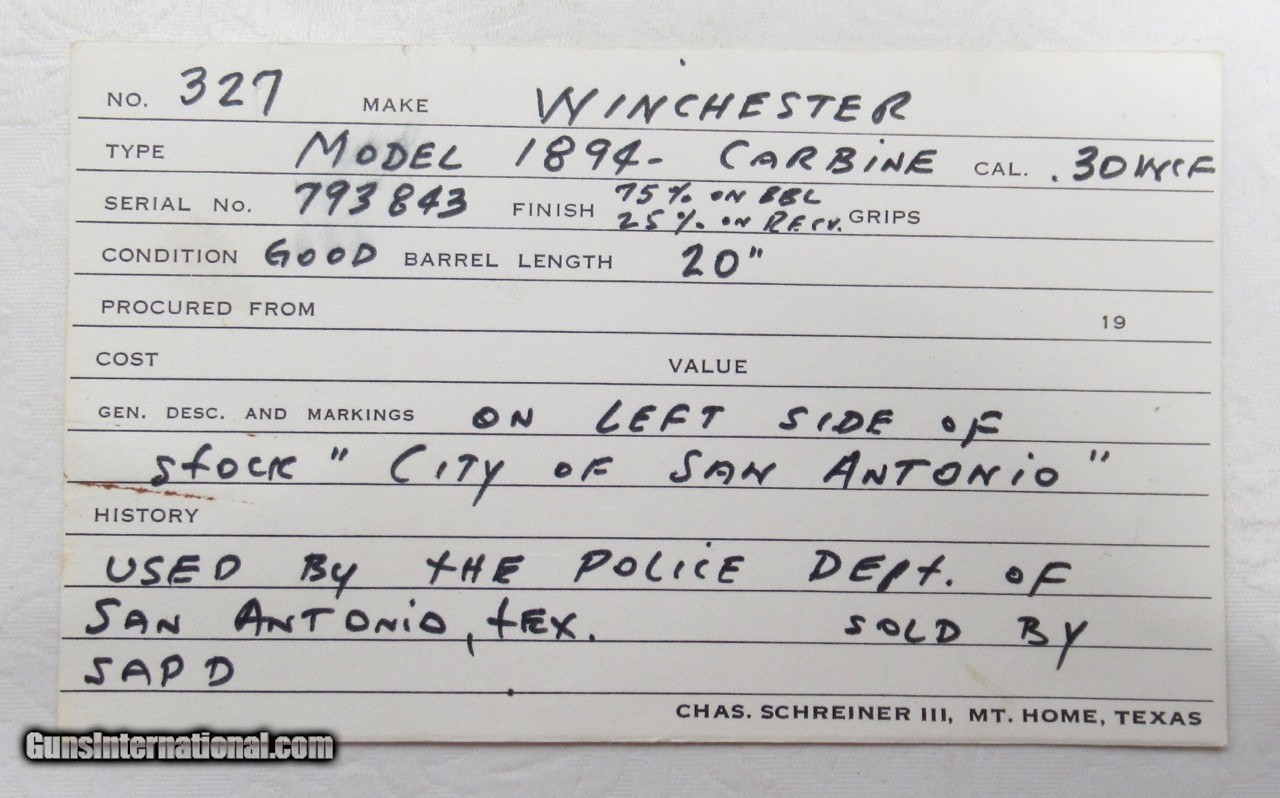 NO. 327 MAKE WINCHESTER
TYPE MODEL 1894- CARBINE CAL. .30 WCF
SERIAL NO. 793843 FINISH 75% ON BBL
25% ON RECV. GRIPS
CONDITION GOOD BARREL LENGTH 20"
PROCURED FROM 19
COST VALUE
GEN. DESC. AND MARKINGS ON LEFT SIDE OF
STOCK " CITY OF SAN ANTONIO "
HISTORY
USED BY THE POLICE DEPT. OF
SAN ANTONIO, TEX. SOLD BY
SAPD
CHAS. SCHREINER III, MT. HOME, TEXAS
GunsInternational.com